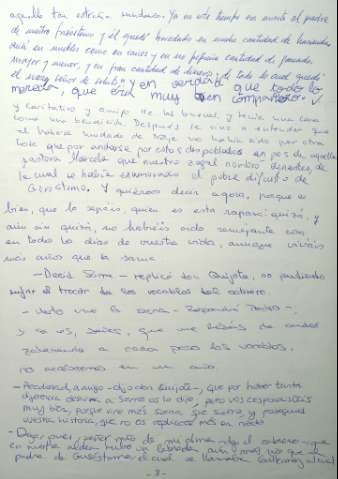 aquella tan extraña mudanza. Ya en este tiempo era muerto el padre
de nuestro Grisóstomo, y él quedó heredado en mucha cantidad de hacienda,
ansí en muebles como en raíces, y en no pequeña cantidad de ganado,
mayor y menor, y en gran cantidad de dineros; de todo lo cual quedó
el mozo señor de soluto, y en verdad que todo lo
merecía, que era muy buen compañero
y caritativo y amigo de los buenos, y tenía una cara
como una bendición. Después se vino a entender que
el haberse mudado de traje no había sido por otra
cosa que por andarse por estos despoblados en pos de aquella
pastora Marcela que nuestro zagal nombró denantes, de
la cual se había enamorado el pobre difunto de
Grisóstomo. Y quiéroos decir agora, porque es
bien que lo sepáis, quién es esta rapaza; quizá, y
aun sin quizá, no habréis oído semejante cosa
en todos los días de vuestra vida, aunque viváis
más años que la sarna.
- Decid Sarra - replicó don Quijote, no pudiendo
sufrir el trocar de los vocablos del cabrero.
- Harto vive la sarna - respondió Pedro -;
y si es, señor, que me habéis de andar
zaheriendo a cada paso los vocablos,
no acabaremos en un año.
- Perdonad, amigo - dijo don Quijote -, que por haber tanta
diferencia de sarna a Sarra os lo dije; pero vos respondistes
muy bien, porque vive más sarna que Sarra; y proseguid
vuestra historia, que no os replicaré más en nada
- Digo, pues, señor mío de mi alma - dijo el cabrero -, que
en nuestra aldea hubo un labrador aún más rico que el
padre de Grisóstomo, el cual se llamaba Guillermo, y al cual
- 3 -